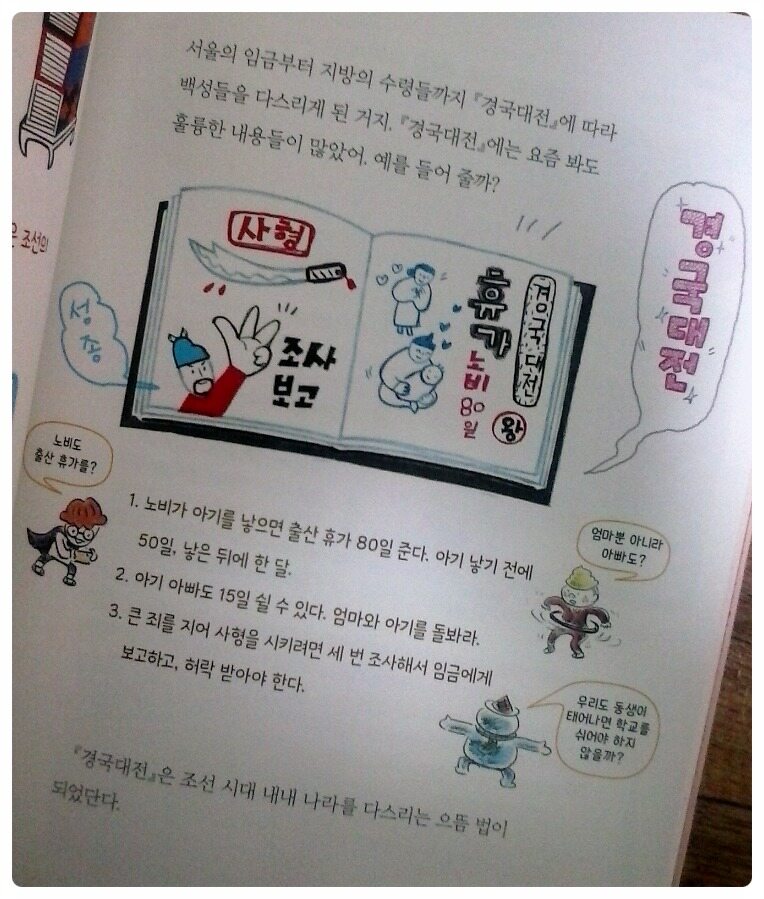 서울의 임금부터 지방의 수령들까지 『경국대전』에 따라
백성들을 다스리게 된 거지. 『경국대전』에는 요즘 봐도
훌륭한 내용들이 많았어. 예를 들어 줄까?
은 조선의
사형
성종
조사
보고
휴가
노비
80일
경국대전
왕
경국대전
노비도
출산 휴가를?
1. 노비가 아기를 낳으면 출산 휴가 80일 준다. 아기 낳기 전에
50일, 낳은 뒤에 한 달.
엄마뿐 아니라
아빠도?
2. 아기 아빠도 15일 쉴 수 있다. 엄마와 아기를 돌봐라.
3. 큰 죄를 지어 사형을 시키려면 세 번 조사해서 임금에게
보고하고, 허락 받아야 한다.
우리도 동생이
태어나면 학교를
쉬어야 하지
않을까?
『경국대전』은 조선 시대 내내 나라를 다스리는 으뜸 법이
되었단다.